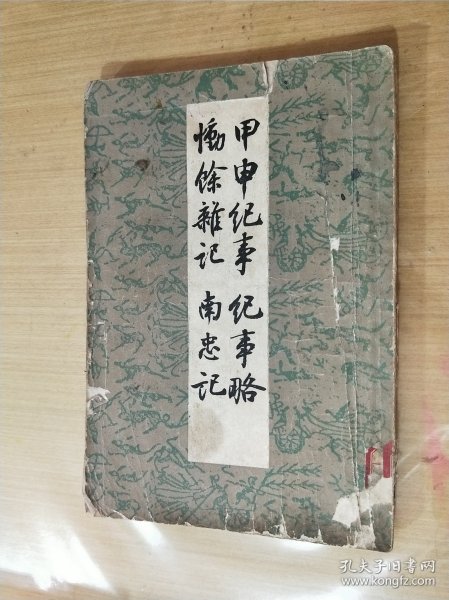 甲申纪事 纪事略
慟餘雜记 南忠记
孔夫子旧书网
www.kongfz.com